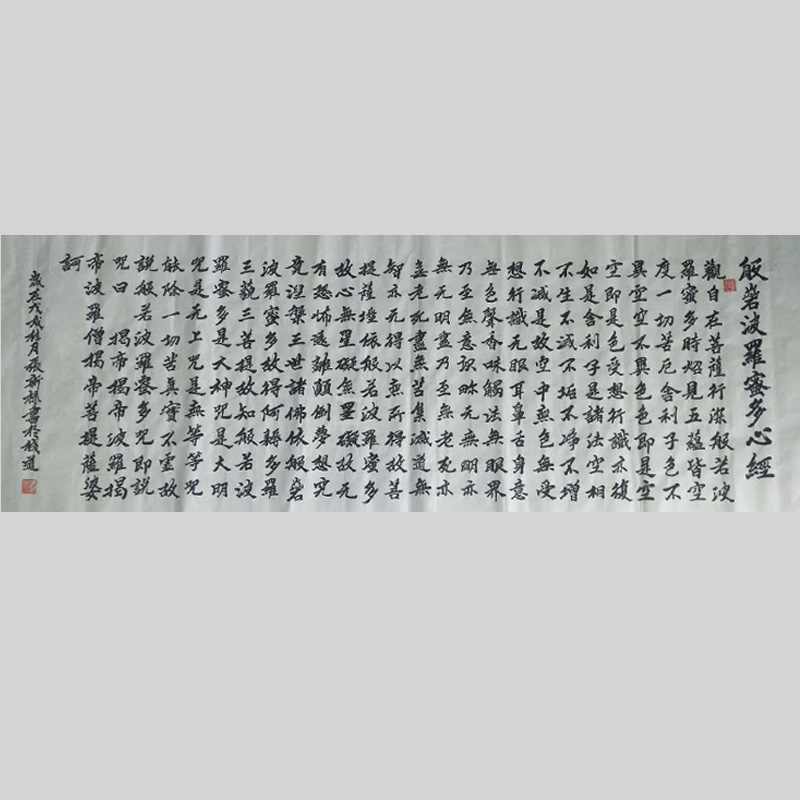 般若波羅蜜多心經
觀自在菩薩行深般若波
羅蜜多時炤見五蘊皆空
度一切苦厄舍利子色不
異空空不異色色即是空
空即是色受想行識亦復
如是舍利子是諸法空相
不生不滅不垢不淨不增
不減是故空中無色無受
想行識无眼耳鼻舌身意
無色聲香味觸法無眼界
乃至無意識界无無明亦
無无明盡乃至無老死亦
無老死盡無苦集滅道無
智亦无得以無所得故菩
提薩埵依般若波羅蜜多
故心無罣礙無罣礙故无
有恐怖遠離顛倒夢想究
竟涅槃三世諸佛依般若
波羅蜜多故得阿耨多羅
三藐三菩提故知般若波
羅蜜多是大神咒是大明
咒是无上咒是無等等咒
能除一切苦真實不虛故
說般若波羅蜜多咒即說
咒曰 揭帝揭帝波羅揭
帝波羅僧揭帝菩提薩婆
訶
歲在戊戌桂月張新書於棧道